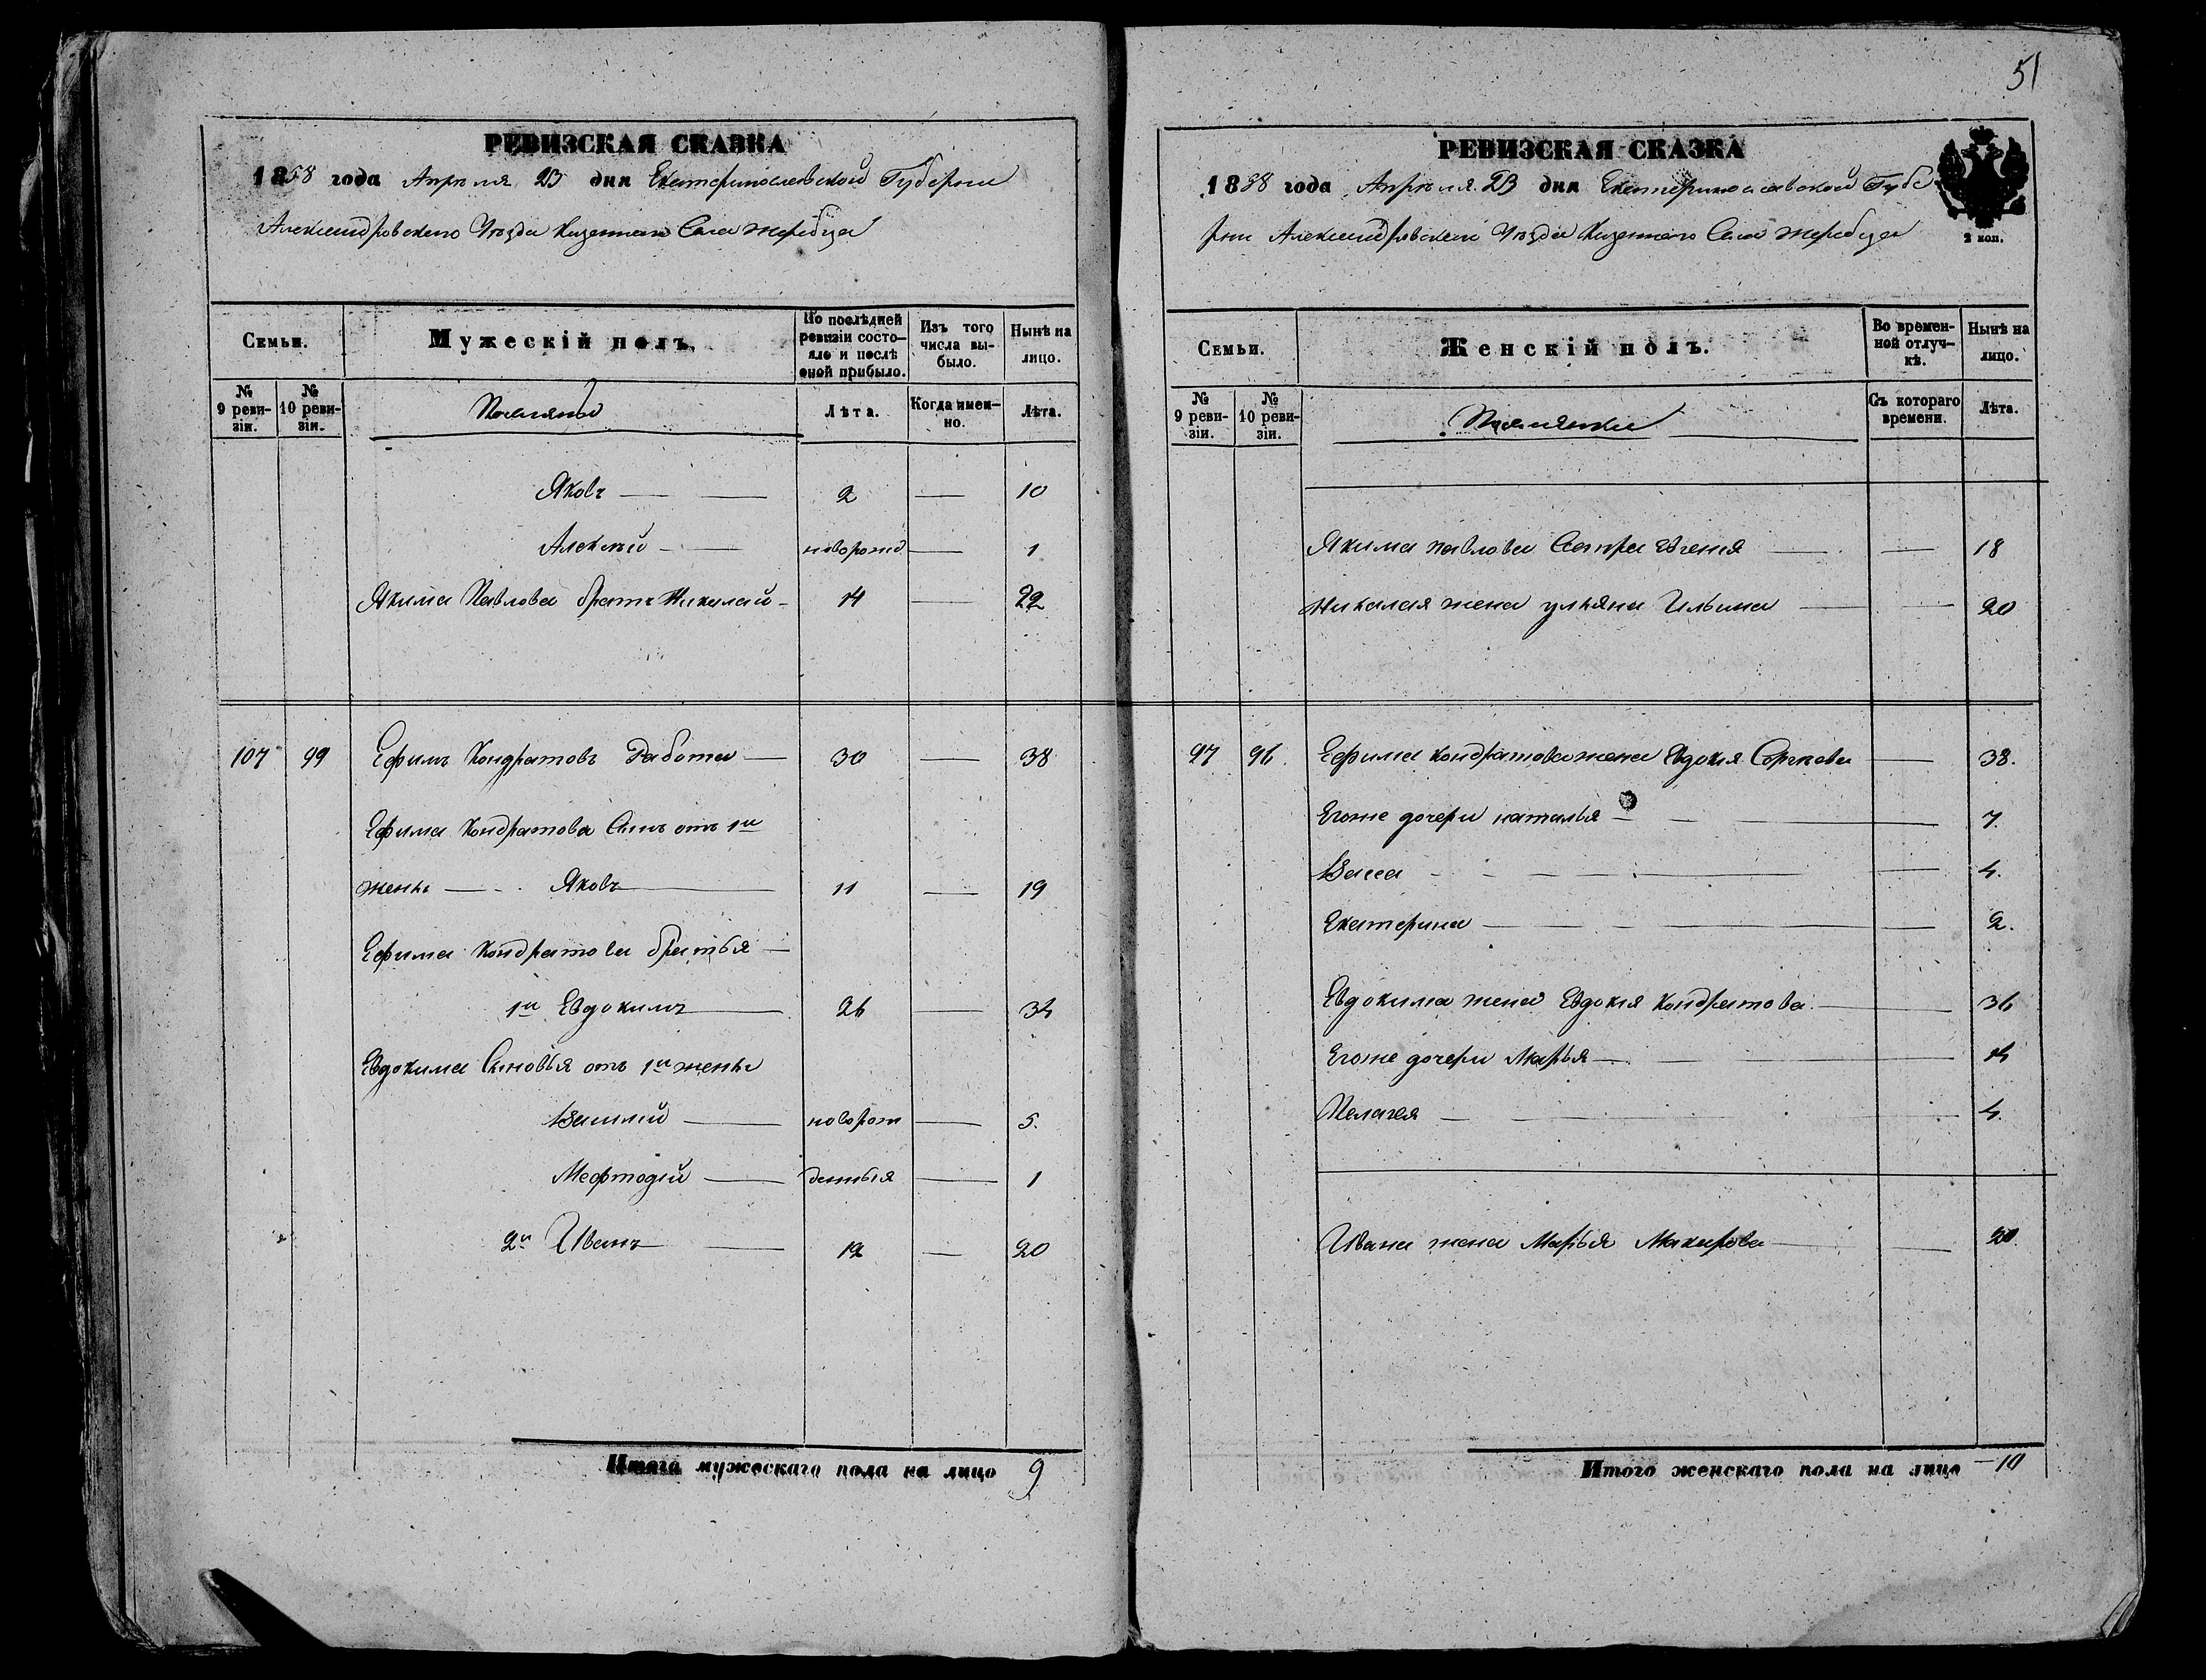 РЕВИЗСКАЯ СКАЗКА
1858 года Апреля 23 дня Екатеринославской Губернии
Александровского Уезда Казенного Села Жеребца
Семьи.
Мужескій полъ.
По послѣдней ревизіи состояло и послѣ оной прибыло.
Изъ того числа выбыло.
Нынѣ на лицо.
№ 9 ревизіи.
№ 10 ревизіи.
Поселяне
Лѣта.
Когда именно.
Лѣта.
Яковъ — — 2 — 10
Алексѣй — — новорожд — 1
Якима Павлова братъ Николай — 14 — 22
107 99 Ефимъ Кондратовъ Работа — 30 — 38
Ефима Кондратова Сынъ отъ 1й
жены — Яковъ — 11 — 19
Ефима Кондратова братья —
1й Евдокимъ — 26 — 34
Евдокима Сыновья отъ 1й жены
Василій — новорож — 5.
Мефтодій — денныя — 1
2й Иванъ — 12 — 20
Итого мужескаго пола на лицо 9
51
РЕВИЗСКАЯ СКАЗКА
1858 года Апреля 23 дня Екатеринославской Губе
рни Александровского Уезда Казенного Села Жеребца
2 коп.
Семьи.
Женскій полъ.
Во временной отлучкѣ.
Нынѣ на лицо.
№ 9 ревизіи.
№ 10 ревизіи.
Поселянки
Съ котораго времени.
Лѣта.
Якима Павлова Сестра Евгения — — 18
Николая жена ульяна Ильина — — 20
97 96. Ефима Кондратова жена Евдокия — 38.
Егоже дочери наталья — — 7.
Васса — — 4.
Екатерина — — 2.
Евдокима жена Евдокия Кондратова — 36
Егоже дочери Марья — — 14
Пелагея — — 4.
Ивана жена Марья Макарова — — 20
Итого женскаго пола на лицо — 10